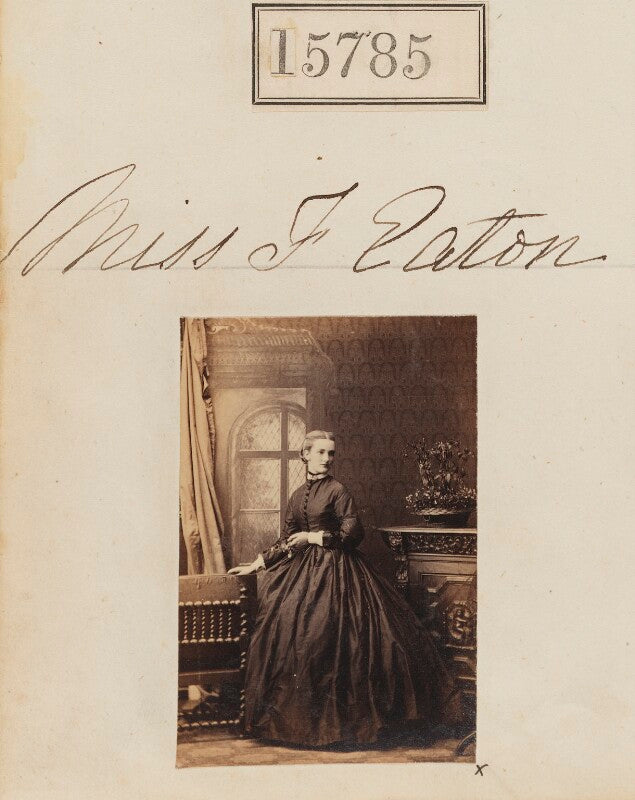 15785
Miss F Eaton
x